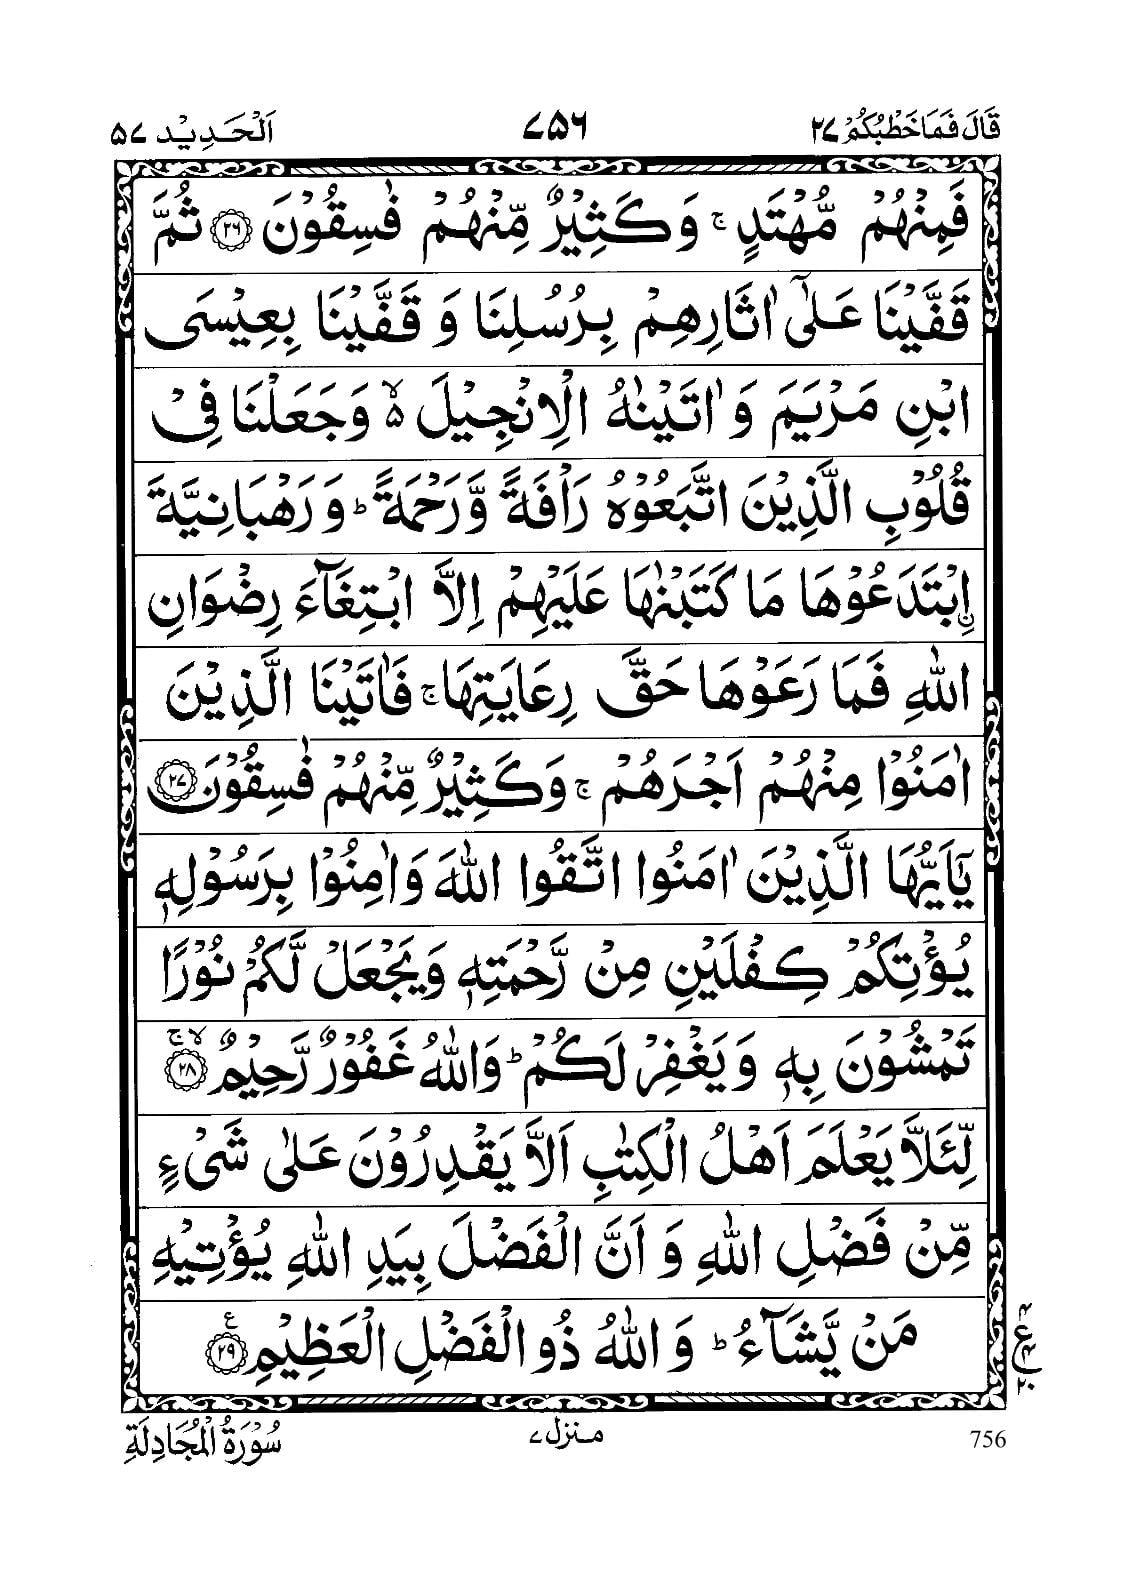 قَالَ فَمَا خَطْبُكُمْ ٢٧
٧٥٦
اَلْحَدِيْد ٥٧
فَمِنْهُمْ مُّهْتَدٍ ۚ وَ كَثِيْرٌ مِّنْهُمْ فٰسِقُوْنَ ﴿٢٦﴾ ثُمَّ
قَفَّيْنَا عَلٰٓى اٰثَارِهِمْ بِرُسُلِنَا وَ قَفَّيْنَا بِعِيْسَى
ابْنِ مَرْيَمَ وَ اٰتَيْنٰهُ الْاِنْجِيْلَ ۙ۬ وَ جَعَلْنَا فِيْ
قُلُوْبِ الَّذِيْنَ اتَّبَعُوْهُ رَاْفَةً وَّ رَحْمَةً ؕ وَ رَهْبَانِيَّةَ
اِ۟بْتَدَعُوْهَا مَا كَتَبْنٰهَا عَلَيْهِمْ اِلَّا ابْتِغَآءَ رِضْوَانِ
اللّٰهِ فَمَا رَعَوْهَا حَقَّ رِعَايَتِهَا ۚ فَاٰتَيْنَا الَّذِيْنَ
اٰمَنُوْا مِنْهُمْ اَجْرَهُمْ ۚ وَ كَثِيْرٌ مِّنْهُمْ فٰسِقُوْنَ ﴿٢٧﴾
يٰٓاَيُّهَا الَّذِيْنَ اٰمَنُوا اتَّقُوا اللّٰهَ وَ اٰمِنُوْا بِرَسُوْلِهٖ
يُؤْتِكُمْ كِفْلَيْنِ مِنْ رَّحْمَتِهٖ وَ يَجْعَلْ لَّكُمْ نُوْرًا
تَمْشُوْنَ بِهٖ وَ يَغْفِرْ لَكُمْ ؕ وَ اللّٰهُ غَفُوْرٌ رَّحِيْمٌ ﴿٢٨﴾ ۙۚ
لِّئَلَّا يَعْلَمَ اَهْلُ الْكِتٰبِ اَلَّا يَقْدِرُوْنَ عَلٰى شَيْءٍ
مِّنْ فَضْلِ اللّٰهِ وَ اَنَّ الْفَضْلَ بِيَدِ اللّٰهِ يُؤْتِيْهِ
مَنْ يَّشَآءُ ؕ وَ اللّٰهُ ذُو الْفَضْلِ الْعَظِيْمِ ﴿٢٩﴾ ع
٤ ع ٤ ٢٠
756
منزل ٧
سُوْرَةُ الْمُجَادِلَةِ